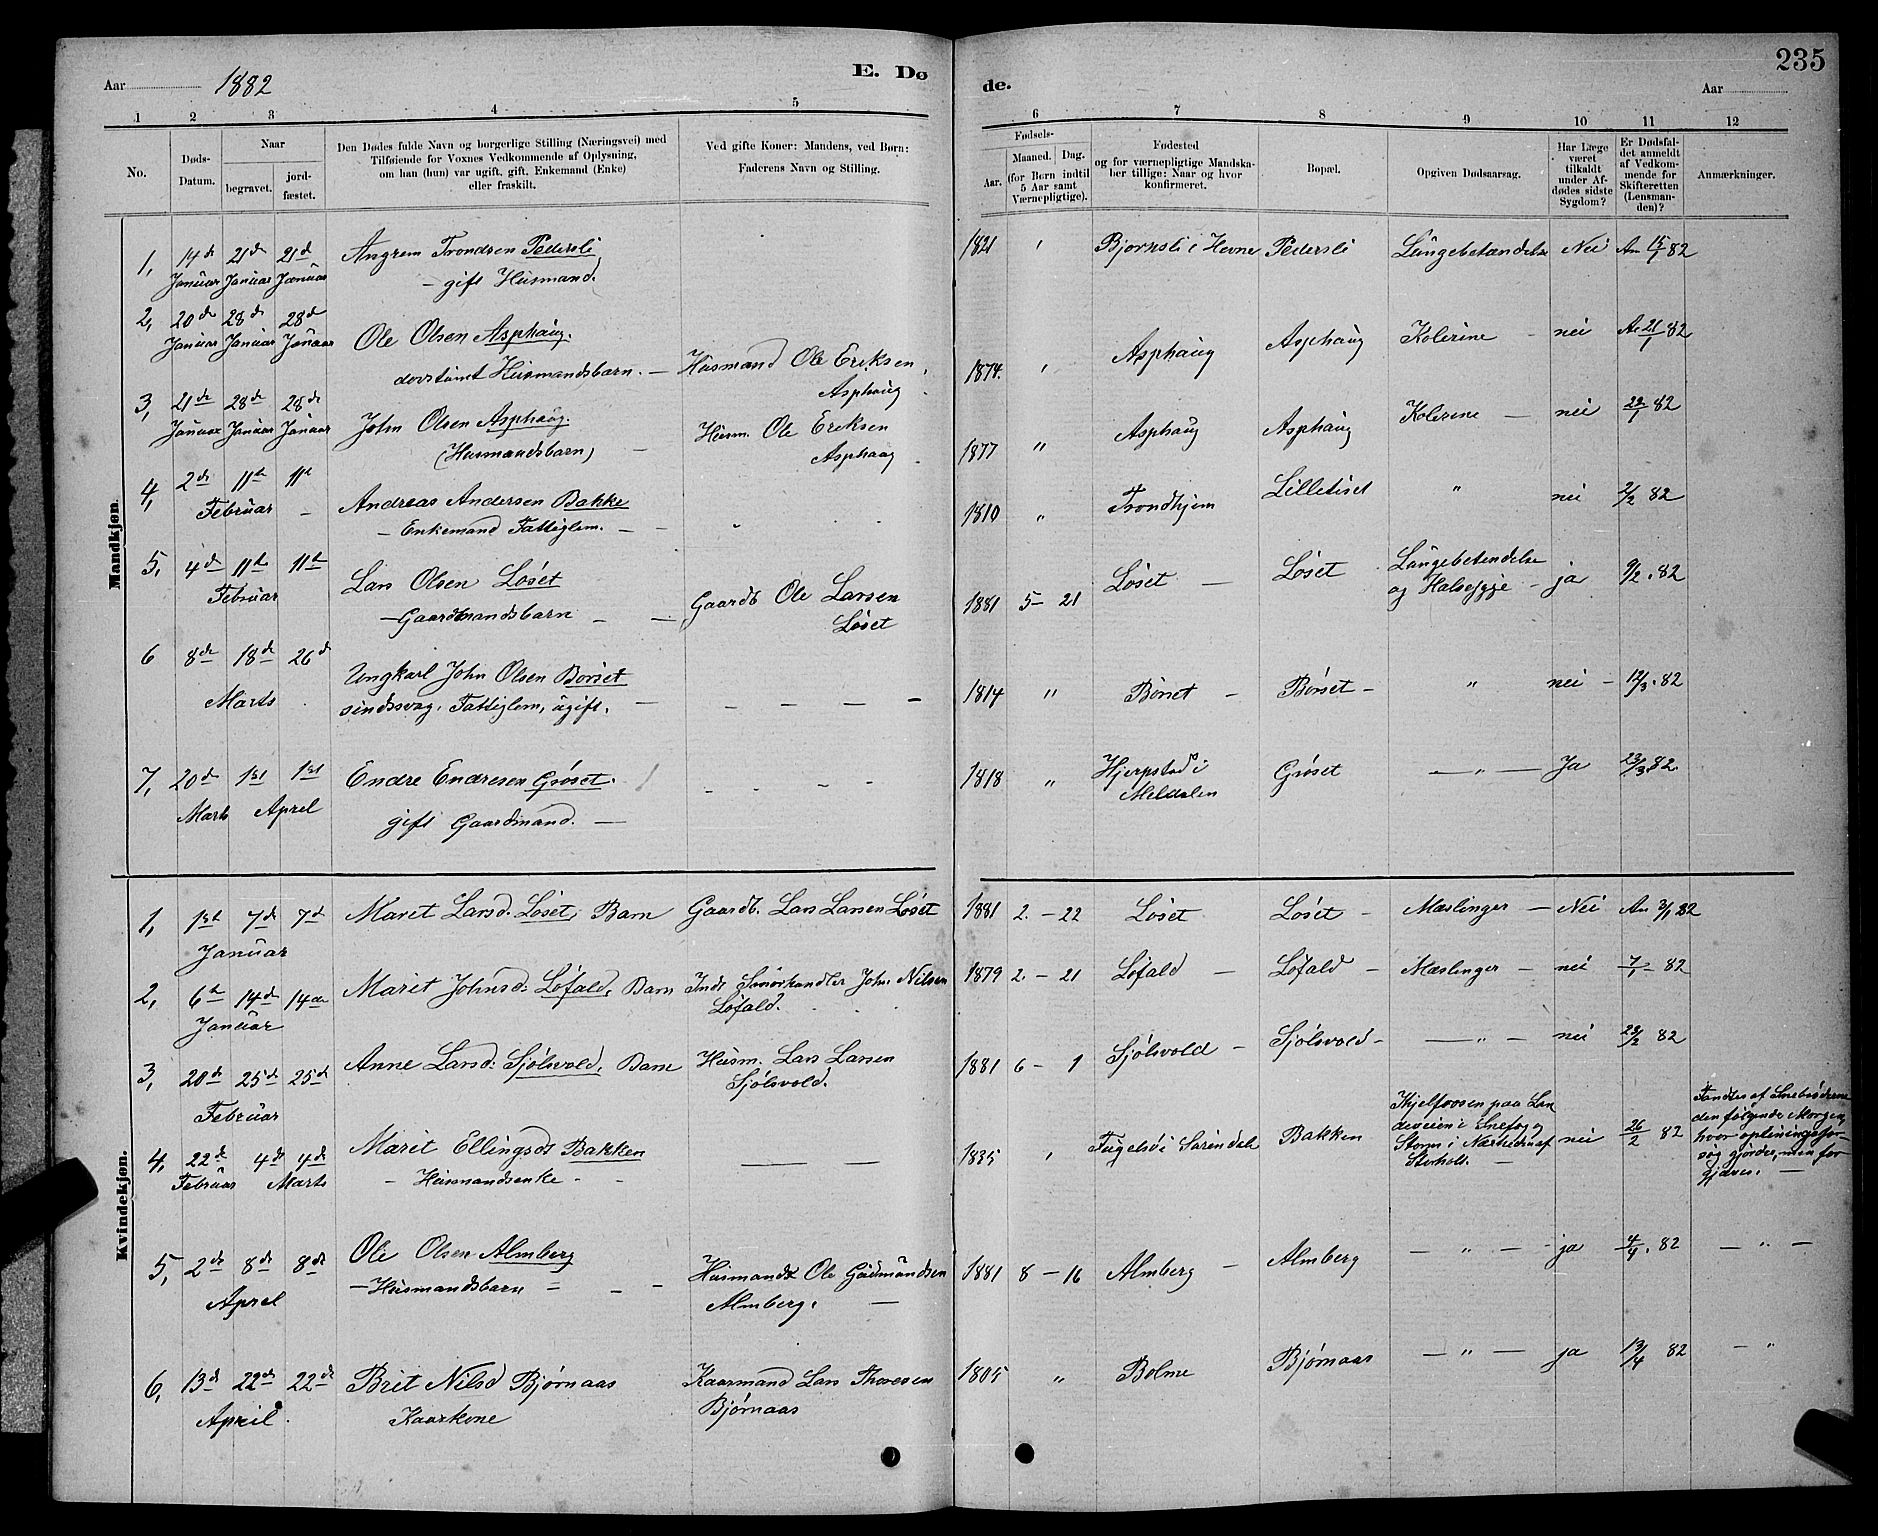 235
Aar 1882 E. Døde. Aar
1 2 3 4 5 6 7 8 9 10 11 12
No. Døds-Datum. Naar begravet. jordfæstet. Den Dødes fulde Navn og borgerlige Stilling (Næringsvei) med Tilføiende for Voxnes Vedkommende af Oplysning, om han (hun) var ugift, gift, Enkemand (Enke) eller fraskilt. Ved gifte Koner: Mandens, ved Børn: Faderens Navn og Stilling. Fødsels- Aar. Maaned. Dag. (for Børn indtil 5 Aar samt Værnepligtige). Fødested og for værnepligtige Mandskaber tillige: Naar og hvor konfirmeret. Bopæl. Opgiven Dødsaarsag. Har Læge været tilkaldt under Afdødes sidste Sygdom? Er Dødsfaldet anmeldt af Vedkommende for Skifteretten (Lensmanden)? Anmærkninger.
Mandkjøn.
1, 14de Januar 21de Januar 21de Januar Angrem Trondsen Pedersli - gift Husmand. 1821 " Bjørnsli i Hevne Pedersli Lungebetændelse Nei An 15/1 82
2, 20de Januar 28de Januar 28de Januar Ole Olsen Asphaug. døvstumt Husmandsbarn. — Husmand Ole Eriksen, Asphaug 1874. " Asphaug Asphaug Kolerine — nei An 21/1 82
3, 21de Januar 28de Januar 28de Januar John Olsen Asphaug. (Husmandsbarn) — Husm. Ole Eriksen Asphaug 1877 " Asphaug Asphaug Kolerine — nei 22/1 82
4, 2de 11te 11te Februar — Andreas Andersen Bakke - Enkemand Fattiglem. — 1810 " Trondhjem Lilletiset " nei 2/2 82
5, 4de 11te 11te Februar Lars Olsen Løset — Gaardmandsbarn — Gaardb. Ole Larsen Løset 1881 5 — 21 Løset — Løset Lungebetendelse og Halssyge — ja 9/2 82
6 8de 18de 26de Marts Ungkarl John Olsen Børset sindssvag, Fattiglem, ugift. — 1814 " Børset — Børset — " nei — 12/3 82
7, 20de Marts 1st 1st Aprel Endre Endresen Grøset. gift Gaardmand. — 1818 " Hjerpstad i Meldalen Grøset — " — Ja 23/3 82.
Kvindekjøn.
1, 1st 7de 7de Januar Maret Larsd. Løset, Barn Gaardb. Lars Larsen Løset 1881 2. — 22 Løset Løset — Mæslinger — Nei An 3/1 82
2, 6te 14de 14de Januar Marit Johnsd: Løfald, Barn Inds. Smørhandler John Nilsen Løfald. 1879 2. — 21 Løfald — Løfald — Mæslinger — nei 7/1 — 82
3, 20de 25de 25de Februar Anne Larsd: Sjølsvold, Barn Husm. Lars Larsen Sjølsvold. 1881 6 — 1 Sjølsvold — Sjølsvold — — " — nei 23/2 82
4, 22de Februar 4de 4de Marts Marit Ellingsdt Bakken - Husmandsenke - — 1835 " Fugelsø i Surendal Bakken Ihjelfrosen paa Landeveien i Snefog og Storm i Nærheden af nei 26/2 82 Fandtes af Snebrøderne den følgende Morgen, hvor oplivningsforsøg gjordes, men forgjæves. —
5, 2de 8de 8de Aprel Ole Olsen Almberg — Husmandsbarn — Husmand Ole Gudmundsen Almberg. — 1881 8 — 16 Almberg — Almberg — " — ja 4/4 82 — " —
6, 13de 22de 22de April. Brit Nilsd Bjørnaas Kaarkone Kaarmand Lars Thoresen Bjørnaas 1805 " Bolme Bjørnaas — " — ja 13/4 82 — "